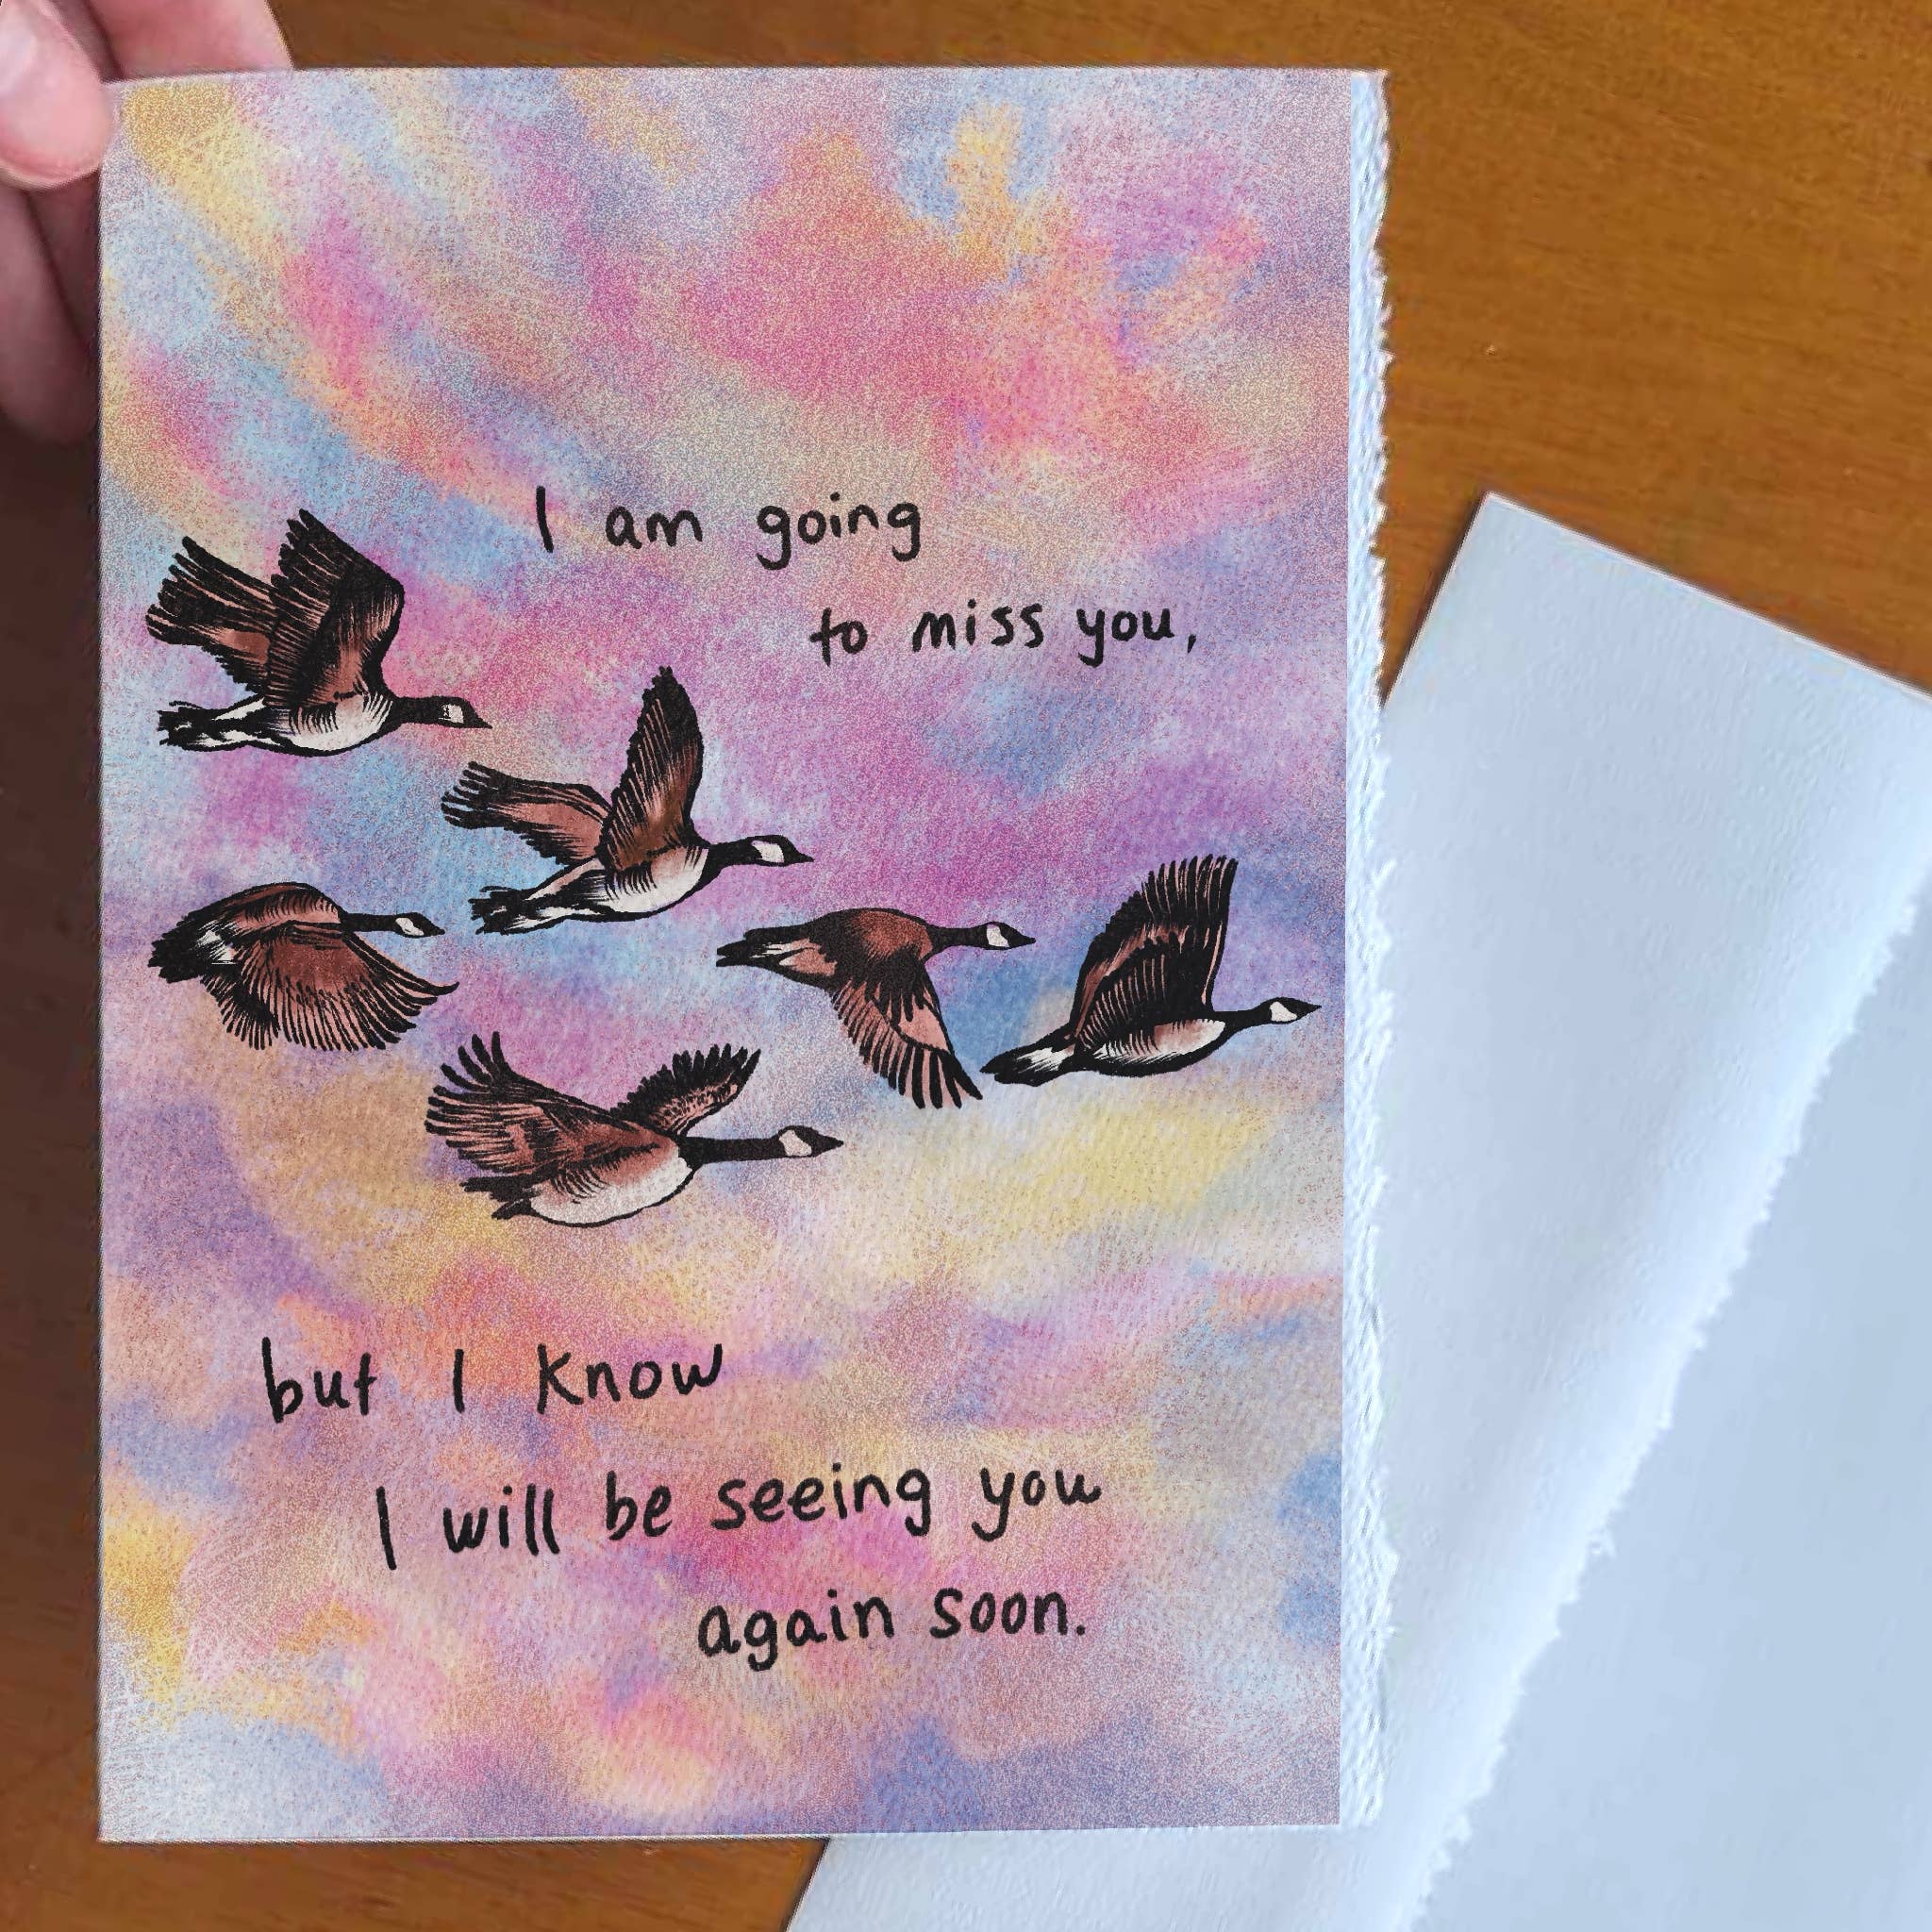 I am going
to miss you,
but I know
I will be seeing you
again soon.